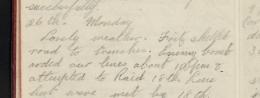 successfully.
26th. Monday
Frosty weather. Fritz shelled
road to trenches. Enemy bomb
arded our lines about 10 pm &
attempted to Raid 18th. Line
but were met by 18th